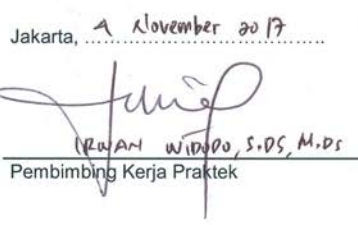 Jakarta, 4 November 2017
IRWAN WIDODO, S.DS, M.Ds
Pembimbing Kerja Praktek